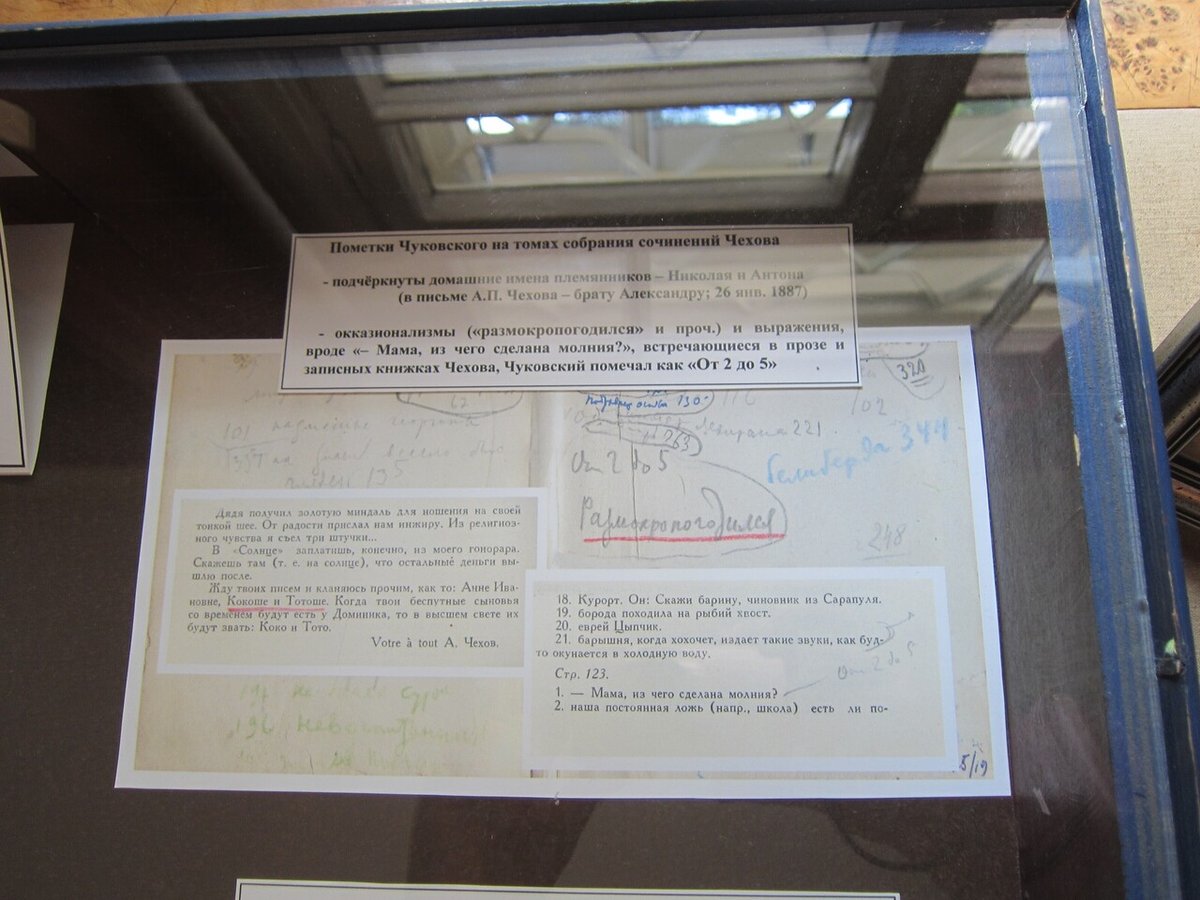 Пометки Чуковского на томах собрания сочинений Чехова
- подчёркнуты домашние имена племянников – Николая и Антона
(в письме А.П. Чехова – брату Александру; 26 янв. 1887)
- окказионализмы («размокропогодился» и проч.) и выражения,
вроде «– Мама, из чего сделана молния?», встречающиеся в прозе и
записных книжках Чехова, Чуковский помечал как «От 2 до 5»
320
62
130
116
102
101
221
263
344
белиберда
135
От 2 до 5
Размокропогодился
248
Дядя получил золотую миндаль для ношения на своей
тонкой шее. От радости прислал нам инжиру. Из религиоз-
ного чувства я съел три штучки...
В «Солнце» заплатишь, конечно, из моего гонорара.
Скажешь там (т. е. на солнце), что остальные деньги вы-
шлю после.
Жду твоих писем и кланяюсь прочим, как то: Анне Ива-
новне, Кокоше и Тотоше. Когда твои беспутные сыновья
со временем будут есть у Доминика, то в высшем свете их
будут звать: Коко и Тото.
Votre à tout А. Чехов.
18. Курорт. Он: Скажи барину, чиновник из Сарапуля.
19. борода походила на рыбий хвост.
20. еврей Цыпчик.
21. барышня, когда хохочет, издает такие звуки, как буд-
то окунается в холодную воду.
От 2 до 5
Стр. 123.
1. — Мама, из чего сделана молния?
2. наша постоянная ложь (напр., школа) есть ли по-
196
5/19